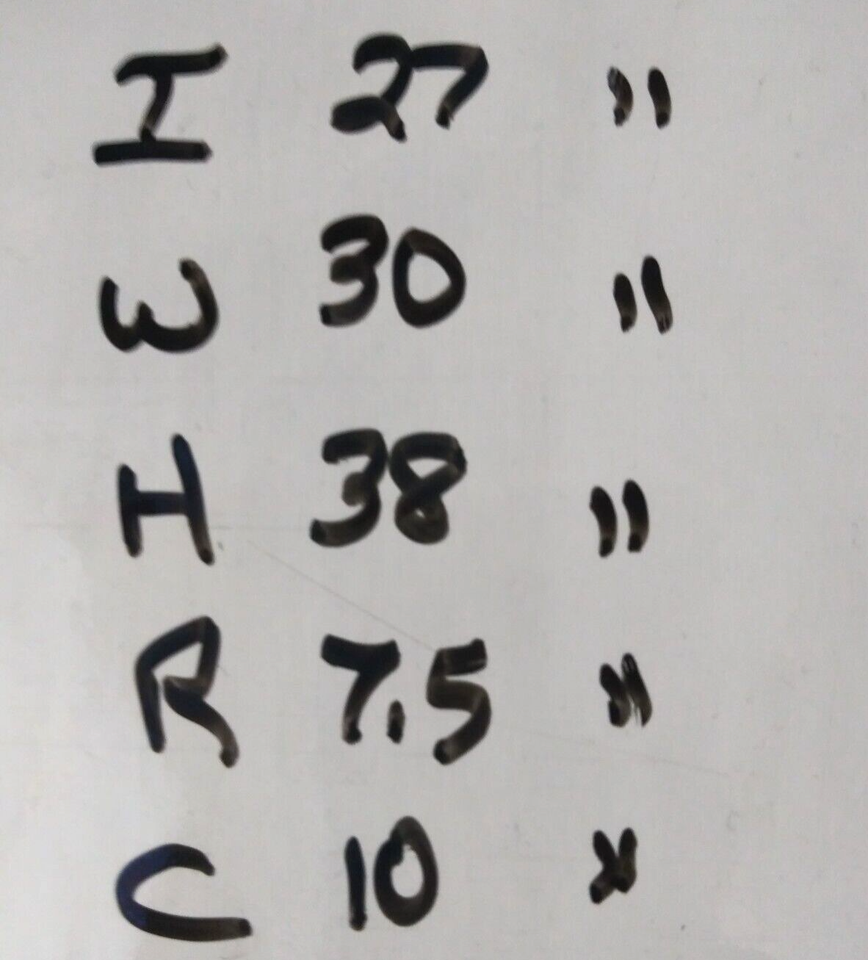 I 27 "
W 30 "
H 38 "
R 7.5 "
C 10 "